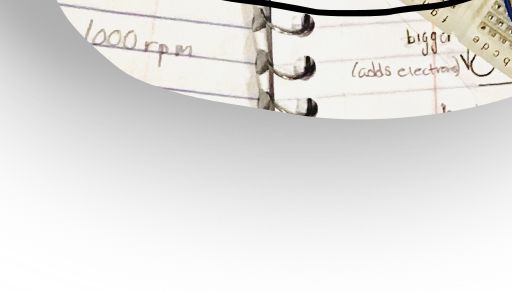 1000 rpm
bigger
(adds electrons)